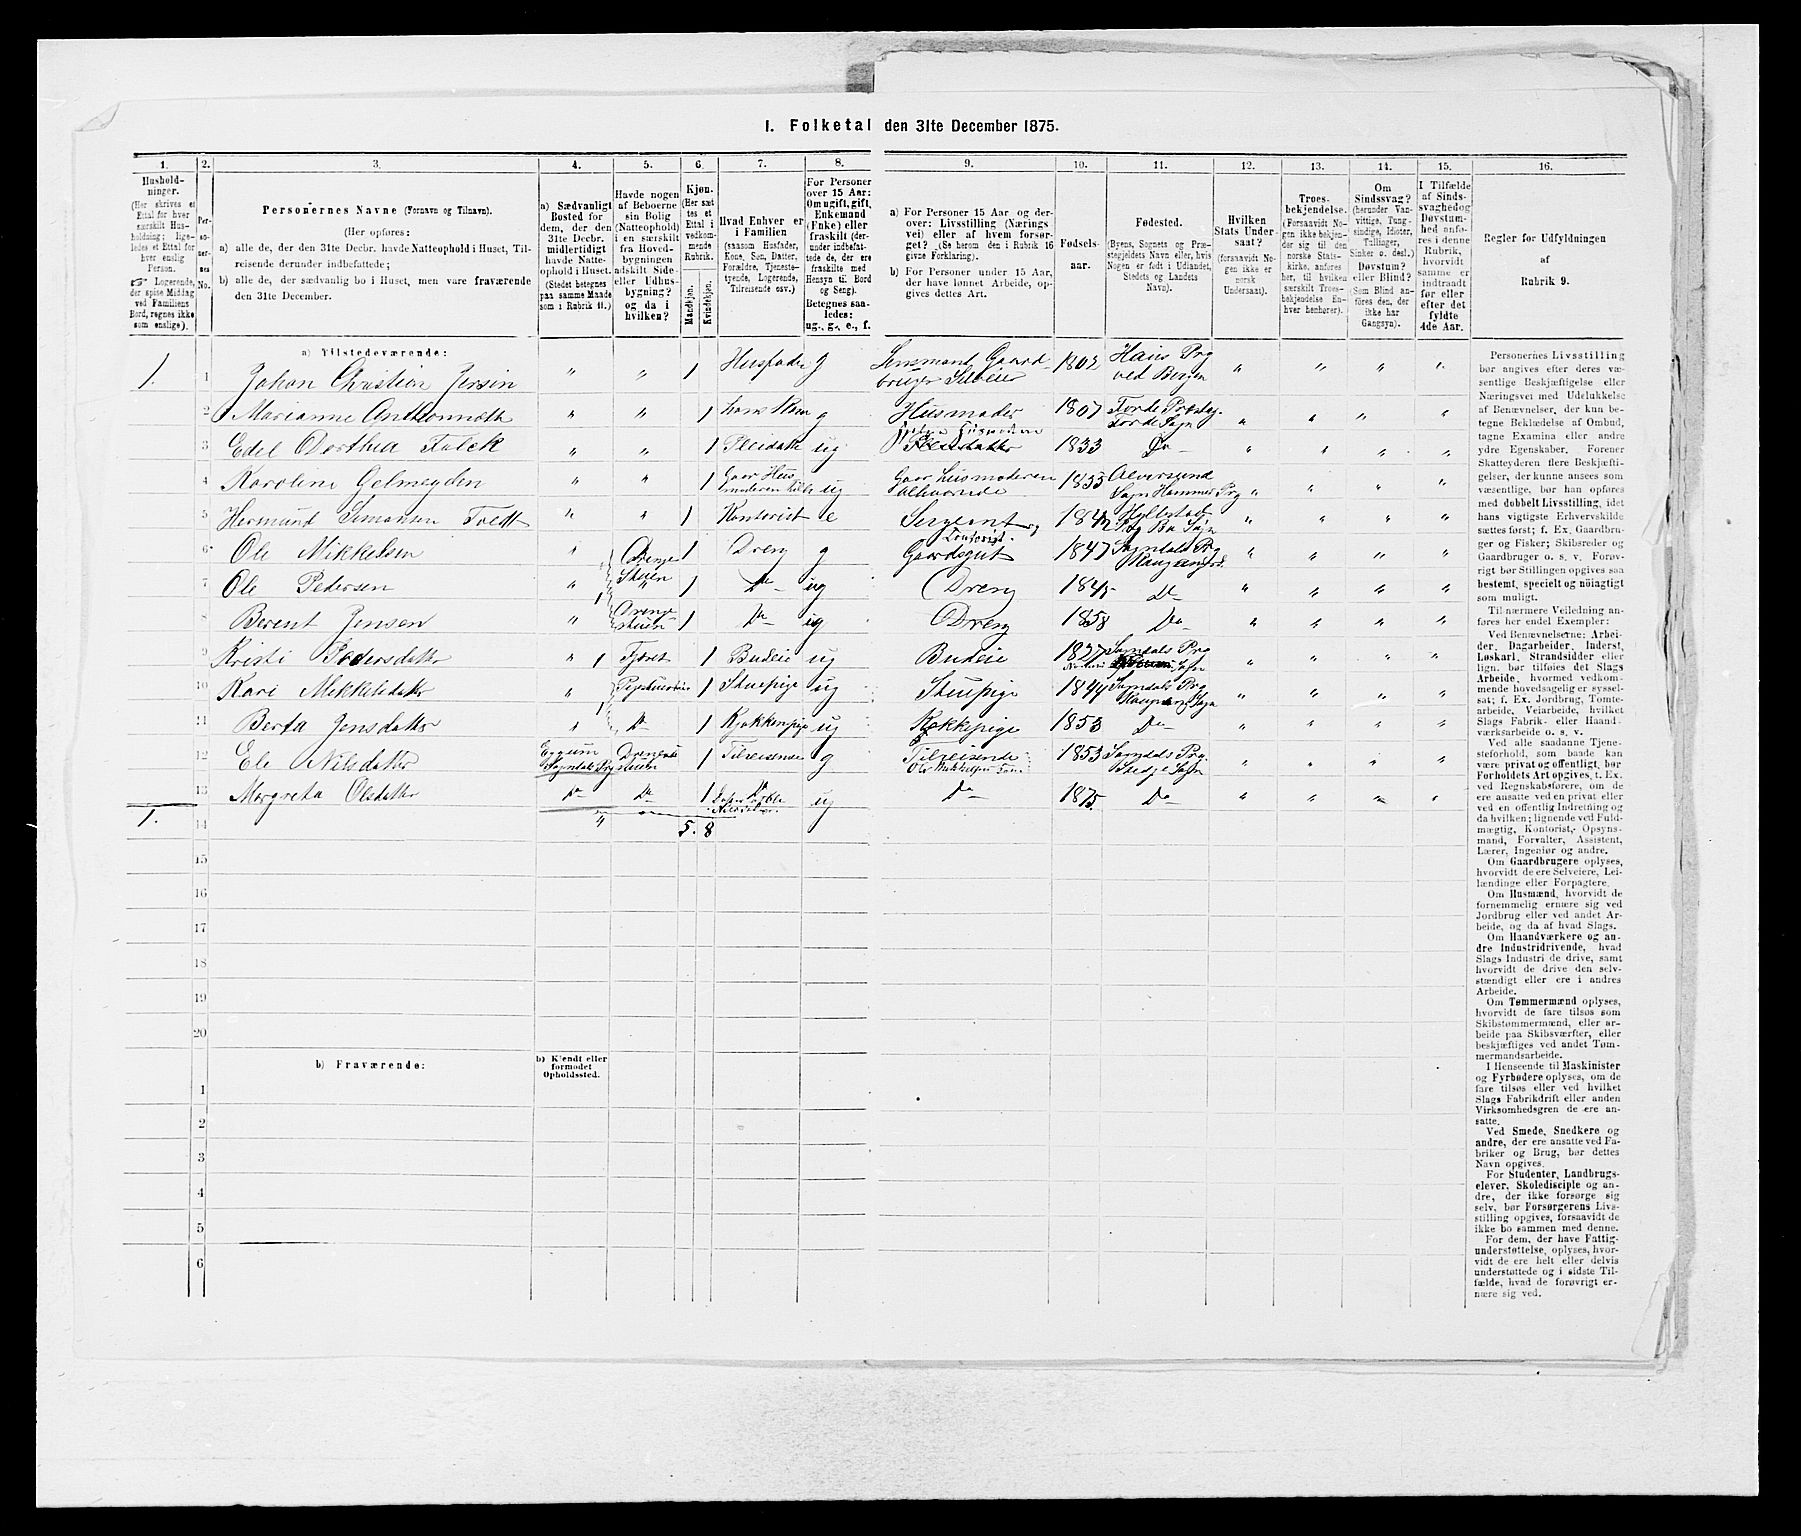 I. Folketal den 31te December 1875.
1. 2. 3. 4. 5. 6. 7. 8. 9. 10. 11. 12. 13. 14. 15. 16.
Hushold-
ninger.
(Her skrives et
Ettal for hver
særskilt Hus-
holdning; lige-
ledes et Ettal for
hver enslig
Person.
☞ Logerende,
der spise Middag
ved Familiens
Bord, regnes ikke
som enslige).
Per-
so-
ner-
nes
No.
Personernes Navne (Fornavn og Tilnavn).
(Her opføres:
a) alle de, der den 31te Decbr. havde Natteophold i Huset, Til-
reisende derunder indbefattede;
b) alle de, der sædvanlig bo i Huset, men vare fraværende
den 31te December.
a) Sædvanligt
Bosted for
dem, der den
31te Decbr.
midlertidigt
havde Natte-
ophold i Huset.
(Stedet betegnes
paa samme Maade
som i Rubrik 11.)
Havde nogen
af Beboerne
sin Bolig
(Natteophold)
i en særskilt
fra Hoved-
bygningen
adskilt Side-
eller Udhus-
bygning?
og da i
hvilken?
Kjøn.
(Her sæt-
tes et
Ettal i
vedkom-
mende
Rubrik.
Mandkjøn.
Kvindekjøn.
Hvad Enhver er
i Familien
(saasom Husfader,
Kone, Søn, Datter,
Forældre, Tjeneste-
tyende, Logerende,
Tilreisende osv.)
For Personer
over 15 Aar:
Om ugift, gift,
Enkemand
(Enke) eller
fraskilt (der-
under indbefat-
tede de, der ere
fraskilte med
Hensyn til Bord
og Seng).
Betegnes saa-
ledes:
ug., g., e., f.
a) For Personer 15 Aar og der-
over: Livsstilling (Nærings
vei) eller af hvem forsør-
get? (Se herom den i Rubrik 16
givne Forklaring).
b) For Personer under 15 Aar,
der have lønnet Arbeide, op-
gives dettes Art.
Fødsels-
aar.
Fødested.
(Byens, Sognets og Præ-
stegjeldets Navn eller, hvis
Nogen er født i Udlandet,
Stedets og Landets
Navn).
Hvilken
Stats Under-
saat?
(forsaavidt No-
gen ikke er
norsk
Undersaat).
Troes-
bekjendelse.
(Forsaavidt No-
gen ikke bekjen-
der sig til den
norske Stats-
kirke, anføres
her, til hvilken
særskilt Troes-
bekjendelse En-
hver henhører).
Om
Sindssvag?
(herunder Van-
vittige, Tung-
sindige, Idioter,
Tullinger,
Sinker o. desl.)
Døvstum?
eller Blind?
(Som Blind an-
føres den, der
ikke har
Gangsyn).
I Tilfælde
af Sinds-
svaghed og
Døvstum-
hed anfø-
res i denne
Rubrik,
hvorvidt
samme er
indtraadt
før eller
efter det
fyldte
4de Aar.
Regler for Udfyldningen
af
Rubrik 9.
a) Tilstedeværende:
1. 1 Johan Christian Jersin " " 1 Husfader g Gaard-bruger Selveier 1802 Haus Prg ved Bergen " " " "
2 Marianne " " 1 hans Kone g Husmoder 1807 Førde Præstg. Førde Sogn " " " "
3 Edel Dorthea Falck " " 1 Pleidatter ug Pleiedatter 1833 Do " " " "
4 Karoline Gelmeyden " " 1 Gaar Hus moderen ug Gaar husmoderen 1833 Alversund Sogn Hammer Prg " " " "
5 Hermund Simonsen " " 1 Kontorist e Sergeant og Kontorist. " " " "
6 Ole Mikkelsen " Drenge Stuen 1 Dreng g Gaardsgut 1847 Sogndals Prg " " " "
7 Ole Pedersen " " 1 Do ug Dreng Do " " " "
8 Berent Jensen " Drenge stuen 1 Do ug Dreng 1858 Do " " " "
9 Kristi Pedersdatter " Fjøset 1 Budeie ug Budeie 1827 Sogndals Prg Sogn " " " "
10 Kari Mikkelsdatter " 1 Stuepige ug Stuepige 1844 Sogndals Prg Sogn " " " "
11 Berta Jensdatter " Do 1 Kjøkkenpige ug Kokkepige 1853 Do " " " "
12 Ele Nilsdatter Sogndals Prg stuen 1 Tilreisende g Tilreisende Ole Mikkelsen Kone 1853 Sogndals Prg. Stedje Sogn " " " "
13 Margreta Olsdatter Do Do 1 ug Do 1875 Do " " " "
1. 14 " 5. 8
15
16
17
18
19
20
b) Fraværende:
b) Kjendt eller
formodet
Opholdssted.
1
2
3
4
5
6
Personernes Livsstilling
bør angives efter deres væ-
sentlige Beskjæftigelse eller
Næringsvei med Udelukkelse
af Benævnelser, der kun be-
tegne Beklædelse af Ombud,
tagne Examina eller andre
ydre Egenskaber. Forener
Skatteyderen flere Beskjæfti-
gelser, der kunne ansees som
væsentlige, bør han opføres
med dobbelt Livsstilling, idet
hans vigtigste Erhvervskilde
sættes først; f. Ex. Gaardbru-
ger og Fisker; Skibsreder og
Gaardbruger o. s. v. Forøv-
rigt bør Stillingen opgives saa
bestemt, specielt og nøiagtigt
som muligt.
Til nærmere Veiledning an-
føres her endel Exempler:
Ved Benævnelserne: Arbei-
der, Dagarbeider, Inderst,
Løskarl, Strandsidder eller
lign. bør tilføies det Slags
Arbeide, hvormed vedkom-
mende hovedsagelig er syssel-
sat; f. Ex. Jordbrug, Tomte-
arbeide, Veiarbeide, hvilket
Slags Fabrik- eller Haand-
værksarbeide o. s. v.
Ved alle saadanne Tjene-
steforhold, som baade kan
være privat og offentlig, bør
Forholdets Art opgives, t. Ex.
ved Regnskabsførere, om de
ere ansatte ved en privat eller
ved en offentlig Indretning og
da hvilken; lignende ved Fuld-
mægtig, Kontorist, Opsyns-
mand, Forvalter, Assistent,
Lærer, Ingeniør og andre.
Om Gaardbrugere oplyses,
hvorvidt de ere Selveiere, Lei-
lændinge eller Forpagtere.
Om Husmænd, hvorvidt de
fornemmelig ernære sig ved
Jordbrug eller ved andet Ar-
beide, og da af hvad Slags.
Om Haandværkere og an-
dre Industridrivende, hvad
Slags Industri de drive, samt
hvorvidt de drive den selv-
stændigt eller ere i andres
Arbeide.
Om Tømmermænd oplyses,
hvorvidt de fare tilsøs som
Skibstømmermænd, eller ar-
beide paa Skibsværfter, eller
beskjæftiges ved andet Tøm-
mermandsarbeide.
I Henseende til Maskinister
og Fyrbødere oplyses, om de
fare tilsøs eller ved hvilket
Slags Fabrikdrift eller anden
Virksomhedsgren de ere an-
satte.
Ved Smede, Snedkere og
andre, der ere ansatte ved Fa-
briker og Brug, bør dettes
Navn opgives.
For Studenter, Landbrugs-
elever, Skoledisciple og an-
dre, der ikke forsørge sig
selv, bør Forsørgerens Livs-
stilling opgives, forsaavidt de
ikke bo sammen med denne.
For dem, der have Fattig-
understøttelse, oplyses, hvor-
vidt de ere helt eller delvis
understøttede og i sidste Til-
fælde, hvad de forøvrigt er-
nære sig ved.